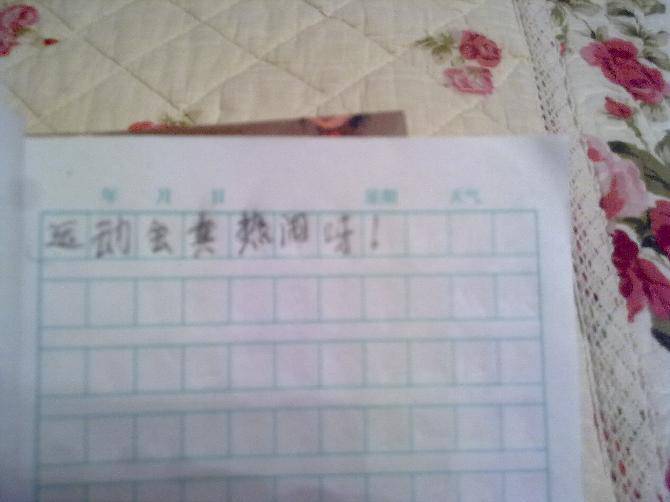 年 月 日 星期 天气
运动会真热闹呀！